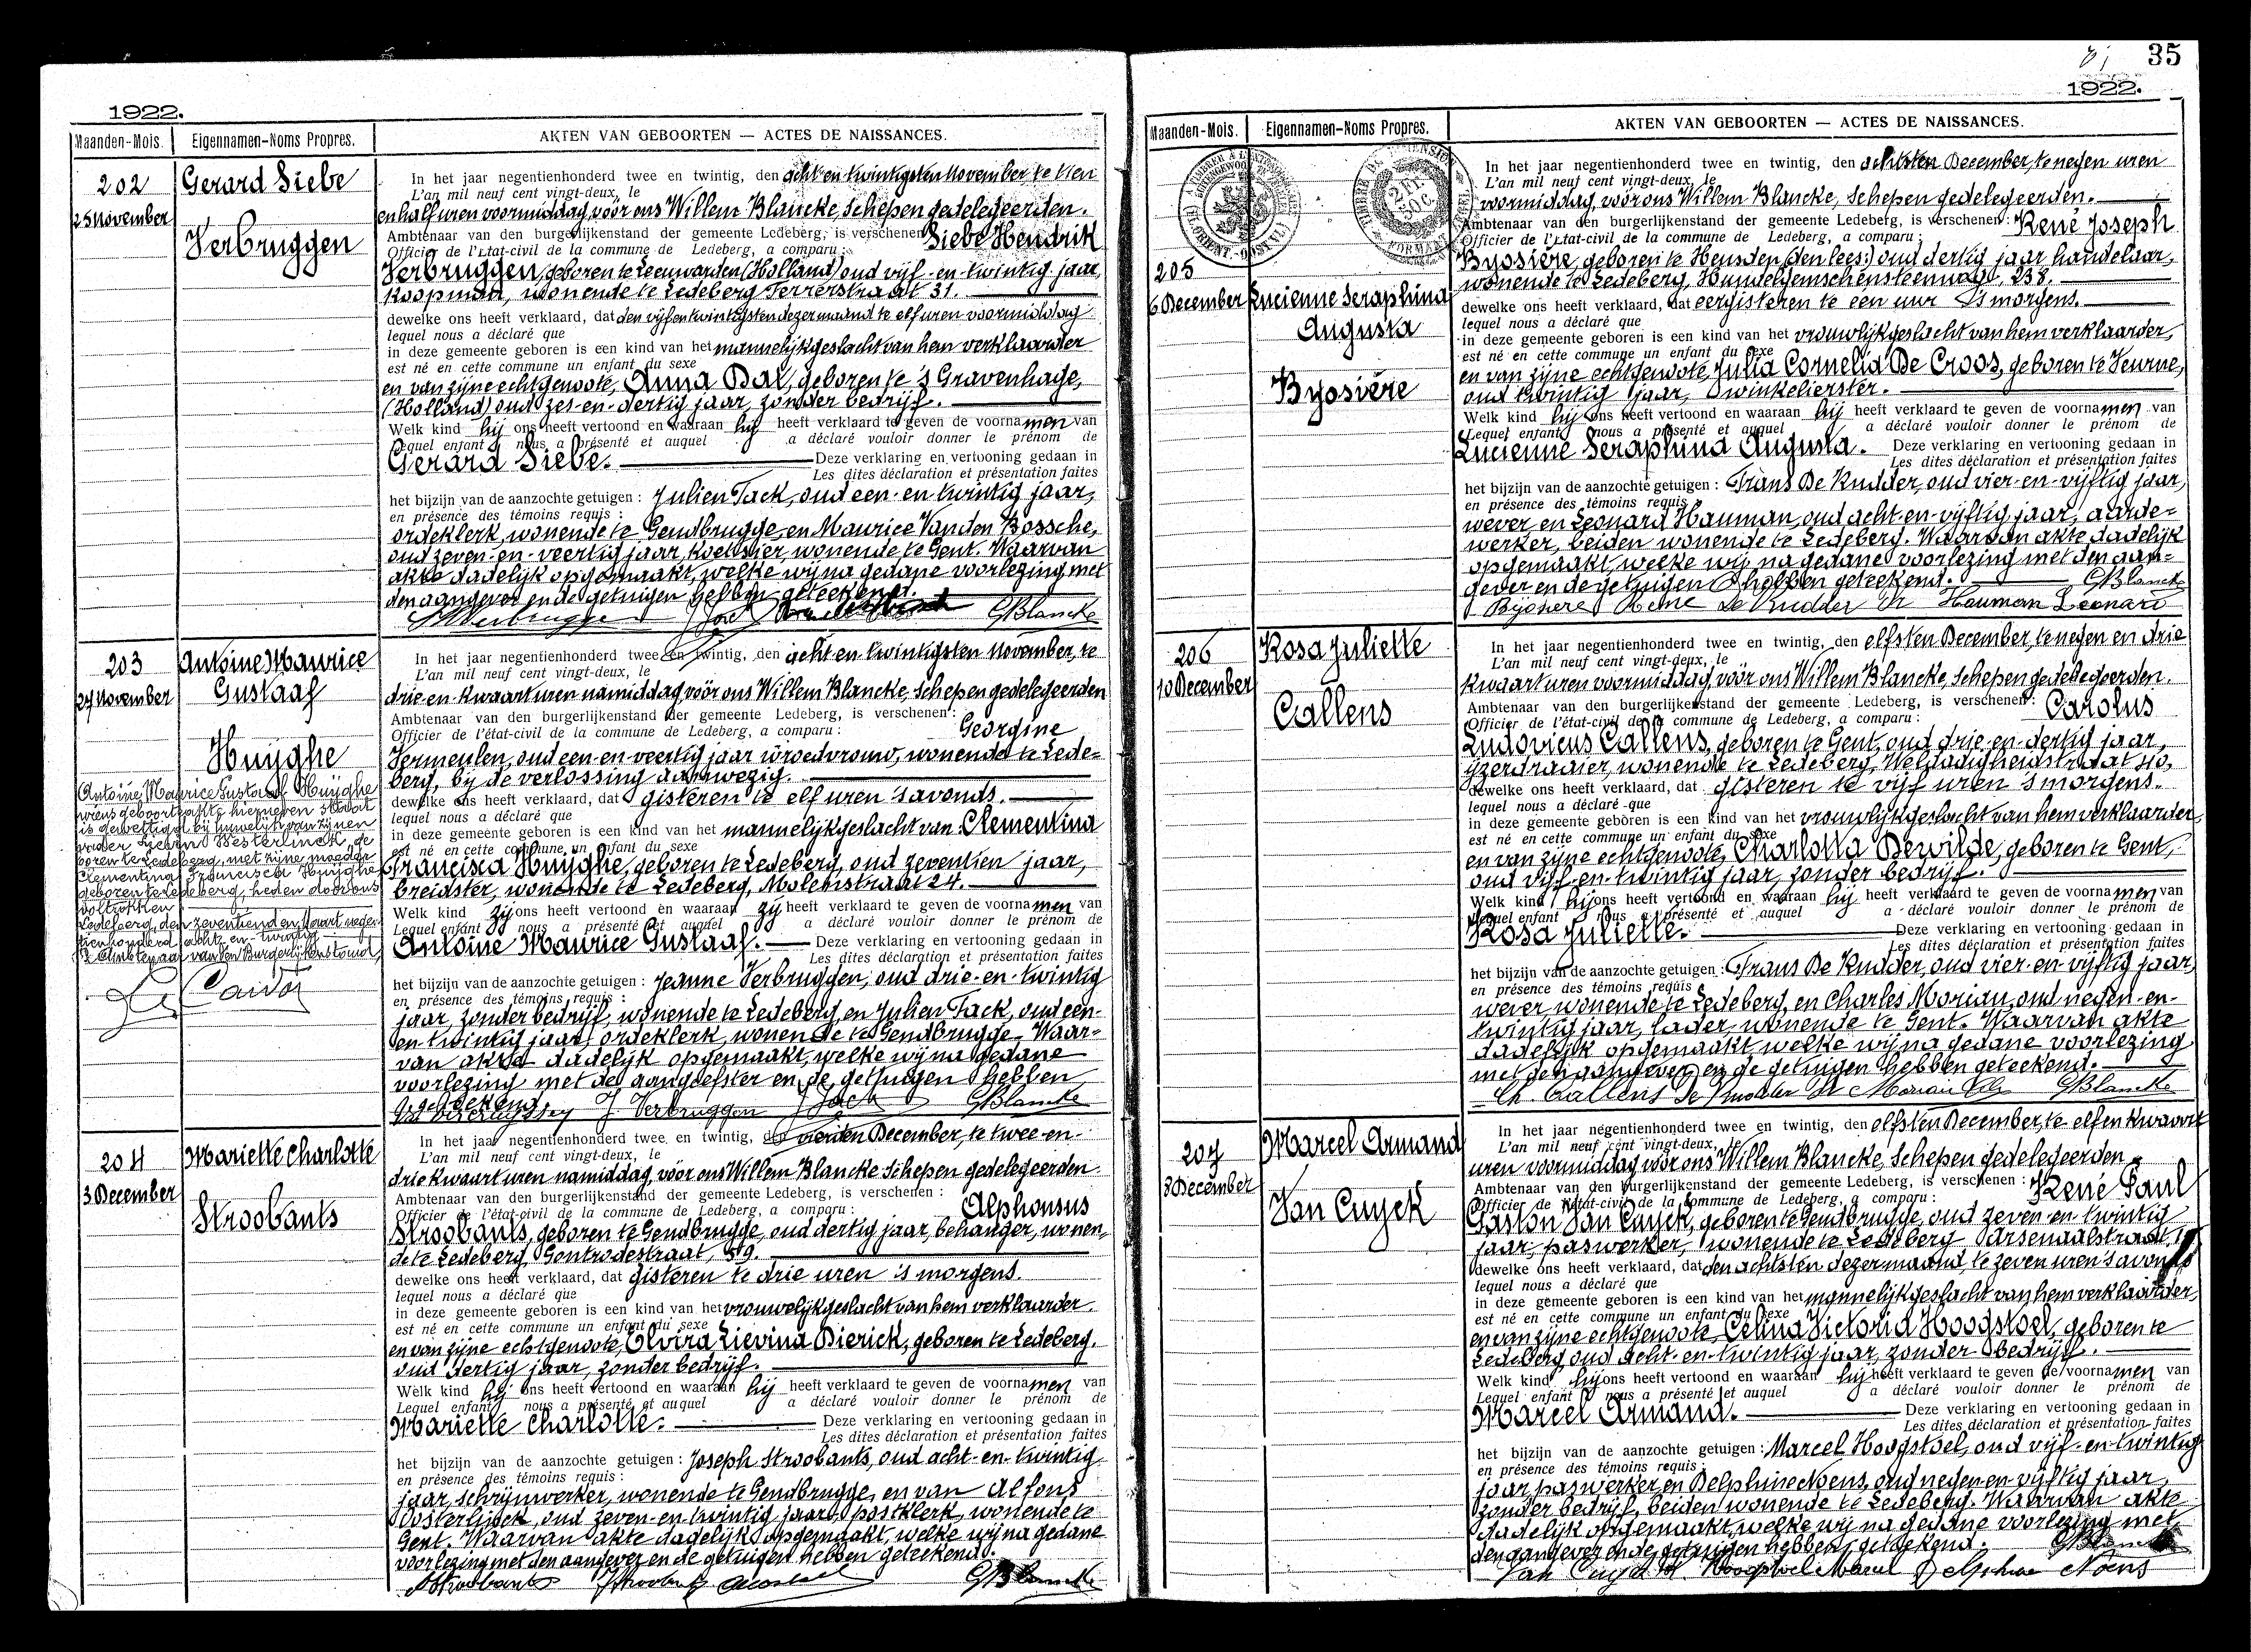 1922.
Maanden-Mois.
Eigennamen-Noms Propres.
AKTEN VAN GEBOORTEN — ACTES DE NAISSANCES.
202
25 November
Gerard Siebe
Verbruggen
In het jaar negentienhonderd twee en twintig, den acht en twintigsten November, te tien
L'an mil neuf cent vingt-deux, le
en half uren voormiddag, vóór ons Willem Blancke, Schepen gedelegeerden.
Ambtenaar van den burgerlijkenstand der gemeente Ledeberg, is verschenen Siebe Hendrik
Officier de l'état-civil de la commune de Ledeberg, a comparu :
Verbruggen, geboren te Leeuwarden (Holland) oud vijf-en-twintig jaar,
Koopman, wonende te Ledeberg Ferrerstraat 31.
dewelke ons heeft verklaard, dat den vijf en twintigsten dezer maand te elf uren voormiddag
lequel nous a déclaré que
in deze gemeente geboren is een kind van het mannelijk geslacht van hem verklaarder
est né en cette commune un enfant du sexe
en van zijne echtgenoote, Anna Dal, geboren te 's Gravenhage,
(Holland) oud zes-en-dertig jaar, zonder bedrijf.
Welk kind hij ons heeft vertoond en waaraan hij heeft verklaard te geven de voornamen van
Lequel enfant nous a présenté et auquel a déclaré vouloir donner le prénom de
Gerard Siebe. Deze verklaring en vertooning gedaan in
Les dites déclaration et présentation faites
het bijzijn van de aanzochte getuigen : Julien Tack, oud een-en-twintig jaar,
en présence des témoins requis :
ordeklerk, wonende te Gendbrugge, en Maurice Vanden Bossche,
oud zeven-en-veertig jaar, koetsier wonende te Gent. Waarvan
akte dadelijk opgemaakt, welke wij na gedane voorlezing met
den aangever en de getuigen hebben geteekend.
GBlancke
203
27 November
Antoine Maurice
Gustaaf
Huyghe
Antoine, Maurice Gustaaf Huyghe
wiens geboorteakte hierneven staat
is gewettigd bij huwelijk van zijnen
vader Liévin Westerlinck, ge
boren te Ledeberg, met zijne moeder
Clementina Francisca Huyghe
geboren te Ledeberg, heden door ons
voltrokken
Ledeberg, den zeventienden Maart negen
tienhonderd acht en twintig
De Ambtenaar van den Burgerlijkenstand,
In het jaar negentienhonderd twee en twintig, den acht en twintigsten November, te
L'an mil neuf cent vingt-deux, le
drie en kwaart uren namiddag, vóór ons Willem Blancke, Schepen gedelegeerden
Ambtenaar van den burgerlijkenstand der gemeente Ledeberg, is verschenen : Georgine
Officier de l'état-civil de la commune de Ledeberg, a comparu :
Vermeulen, oud een-en-veertig jaar vroedvrouw, wonende te Lede=
berg, bij de verlossing aanwezig.
dewelke ons heeft verklaard, dat gisteren te elf uren 's avonds.
lequel nous a déclaré que
in deze gemeente geboren is een kind van het mannelijk geslacht van Clementina
est né en cette commune un enfant du sexe
Francisca Huyghe, geboren te Ledeberg, oud zeventien jaar,
breidster, wonende te Ledeberg, Molenstraat 24.
Welk kind zij ons heeft vertoond en waaraan zij heeft verklaard te geven de voornamen van
Lequel enfant nous a présenté et auquel a déclaré vouloir donner le prénom de
Antoine Maurice Gustaaf. Deze verklaring en vertooning gedaan in
Les dites déclaration et présentation faites
het bijzijn van de aanzochte getuigen : Jeanne Verbruggen, oud drie-en-twintig
en présence des témoins requis :
jaar, zonder bedrijf, wonende te Ledeberg, en Julien Tack, oud een-
en-twintig jaar, ordeklerk, wonende te Gendbrugge. Waar=
van akte dadelijk opgemaakt, welke wij na gedane
voorlezing met de aangeefster en de getuigen hebben
geteekend.
J. Verbruggen J Tack GBlancke
204
3 December
Mariette Charlotte
Stroobants
In het jaar negentienhonderd twee en twintig, den vierden December, te twee en
L'an mil neuf cent vingt-deux, le
drie kwaart uren namiddag, vóór ons Willem Blancke Schepen gedelegeerden
Ambtenaar van den burgerlijkenstand der gemeente Ledeberg, is verschenen : Alphonsus
Officier de l'état-civil de la commune de Ledeberg, a comparu :
Stroobants, geboren te Gendbrugge, oud dertig jaar, behanger, wonen=
de te Ledeberg, Gontrodestraat, 59.
dewelke ons heeft verklaard, dat gisteren te drie uren 's morgens.
lequel nous a déclaré que
in deze gemeente geboren is een kind van het vrouwelijk geslacht van hem verklaarder.
est né en cette commune un enfant du sexe
en van zijne echtgenoote, Elvira Lievina Dierick, geboren te Ledeberg.
oud dertig jaar, zonder bedrijf.
Welk kind hij ons heeft vertoond en waaraan hij heeft verklaard te geven de voornamen van
Lequel enfant nous a présenté et auquel a déclaré vouloir donner le prénom de
Mariette Charlotte. Deze verklaring en vertooning gedaan in
Les dites déclaration et présentation faites
het bijzijn van de aanzochte getuigen : Joseph Stroobants, oud acht-en-twintig
en présence des témoins requis :
jaar, schrijnwerker, wonende te Gendbrugge, en van Alfons
Oosterlijnck, oud zeven-en-twintig jaar, postklerk, wonende te
Gent. Waarvan akte dadelijk opgemaakt, welke wij na gedane
voorlezing met den aangever en de getuigen hebben geteekend.
AStroobants JStroobants GBlancke
35
1922.
Maanden-Mois.
Eigennamen-Noms Propres.
AKTEN VAN GEBOORTEN — ACTES DE NAISSANCES.
205
6 December
Lucienne Seraphina
Augusta
Byosière
In het jaar negentienhonderd twee en twintig, den achtsten December, te negen uren
L'an mil neuf cent vingt-deux, le
voormiddag, vóór ons Willem Blancke, Schepen gedelegeerden.
Ambtenaar van den burgerlijkenstand der gemeente Ledeberg, is verschenen : René Joseph
Officier de l'état-civil de la commune de Ledeberg, a comparu :
Byosière, geboren te Heusden (den lees:) oud dertig jaar handelaar,
wonende te Ledeberg, Hundelgemschensteenweg, 238.
dewelke ons heeft verklaard, dat eergisteren te een uur 's morgens.
lequel nous a déclaré que
in deze gemeente geboren is een kind van het vrouwlijk geslacht van hem verklaarder,
est né en cette commune un enfant du sexe
en van zijne echtgenoote, Julia Cornelia De Croos, geboren te Heurne,
oud twintig jaar, winkelierster.
Welk kind hij ons heeft vertoond en waaraan hij heeft verklaard te geven de voornamen van
Lequel enfant nous a présenté et auquel a déclaré vouloir donner le prénom de
Lucienne Seraphina Augusta. Deze verklaring en vertooning gedaan in
Les dites déclaration et présentation faites
het bijzijn van de aanzochte getuigen : Frans De Rudder, oud vier-en-vijftig jaar,
en présence des témoins requis :
wever en Leonard Hauman, oud acht-en-vijftig jaar, aarde=
werker, beiden wonende te Ledeberg. Waarvan akte dadelijk
opgemaakt, welke wij na gedane voorlezing met den aan=
gever en de getuigen hebben geteekend. GBlancke
Byosiere René De Rudder Fr Hauman Leonard
206
10 December
Rosa Juliette
Callens
In het jaar negentienhonderd twee en twintig, den elfsten December, te negen en drie
L'an mil neuf cent vingt-deux, le
kwaart uren voormiddag, vóór ons Willem Blancke, Schepen gedelegeerden.
Ambtenaar van den burgerlijkenstand der gemeente Ledeberg, is verschenen : Carolus
Officier de l'état-civil de la commune de Ledeberg, a comparu :
Ludovicus Callens, geboren te Gent, oud drie-en-dertig jaar,
ijzerdraaier, wonende te Ledeberg, Weldadigheidstraat 40,
dewelke ons heeft verklaard, dat gisteren te vijf uren 's morgens.
lequel nous a déclaré que
in deze gemeente geboren is een kind van het vrouwlijk geslacht van hem verklaarder,
est né en cette commune un enfant du sexe
en van zijne echtgenoote, Charlotta Dewilde, geboren te Gent,
oud vijf-en-twintig jaar, zonder bedrijf.
Welk kind hij ons heeft vertoond en waaraan hij heeft verklaard te geven de voornamen van
Lequel enfant nous a présenté et auquel a déclaré vouloir donner le prénom de
Rosa Juliette. Deze verklaring en vertooning gedaan in
Les dites déclaration et présentation faites
het bijzijn van de aanzochte getuigen : Frans De Rudder, oud vier-en-vijftig jaar,
en présence des témoins requis
wever, wonende te Ledeberg, en Charles Moriau, oud negen-en-
twintig jaar, lader, wonende te Gent. Waarvan akte
dadelijk opgemaakt, welke wij na gedane voorlezing
met den aangever en de getuigen hebben geteekend.
Ch. Callens De Rudder Fr Moriau Ch GBlancke
207
8 December
Marcel Armand
Van Cuyck
In het jaar negentienhonderd twee en twintig, den elfsten December, te elf en kwaart
L'an mil neuf cent vingt-deux, le
uren voormiddag vóór ons Willem Blancke, Schepen gedelegeerden
Ambtenaar van den burgerlijkenstand der gemeente Ledeberg, is verschenen : René Paul
Officier de l'état-civil de la commune de Ledeberg, a comparu :
Gaston Van Cuyck, geboren te Gendbrugge, oud zeven-en-twintig
jaar, paswerker, wonende te Ledeberg Arsenaalstraat,
dewelke ons heeft verklaard, dat den achtsten dezer maand, te zeven uren 's avonds
lequel nous a déclaré que
in deze gemeente geboren is een kind van het mannelijk geslacht van hem verklaarder,
est né en cette commune un enfant du sexe
en van zijne echtgenoote, Celina Victoria Hoogstoel, geboren te
Ledeberg oud acht-en-twintig jaar, zonder bedrijf.
Welk kind hij ons heeft vertoond en waaraan hij heeft verklaard te geven de voornamen van
Lequel enfant nous a présenté et auquel a déclaré vouloir donner le prénom de
Marcel Armand. Deze verklaring en vertooning gedaan in
Les dites déclaration et présentation faites
het bijzijn van de aanzochte getuigen : Marcel Hoogstoel, oud vijf-en-twintig
en présence des témoins requis :
jaar, paswerker, en Delphine Noens, oud negen-en-vijftig jaar,
zonder bedrijf, beiden wonende te Ledeberg. Waarvan akte
dadelijk opgemaakt, welke wij na gedane voorlezing met
den aangever en de getuigen hebben geteekend. GBlancke
Van Cuyck R Hoogstoel Marcel Delphine Noens